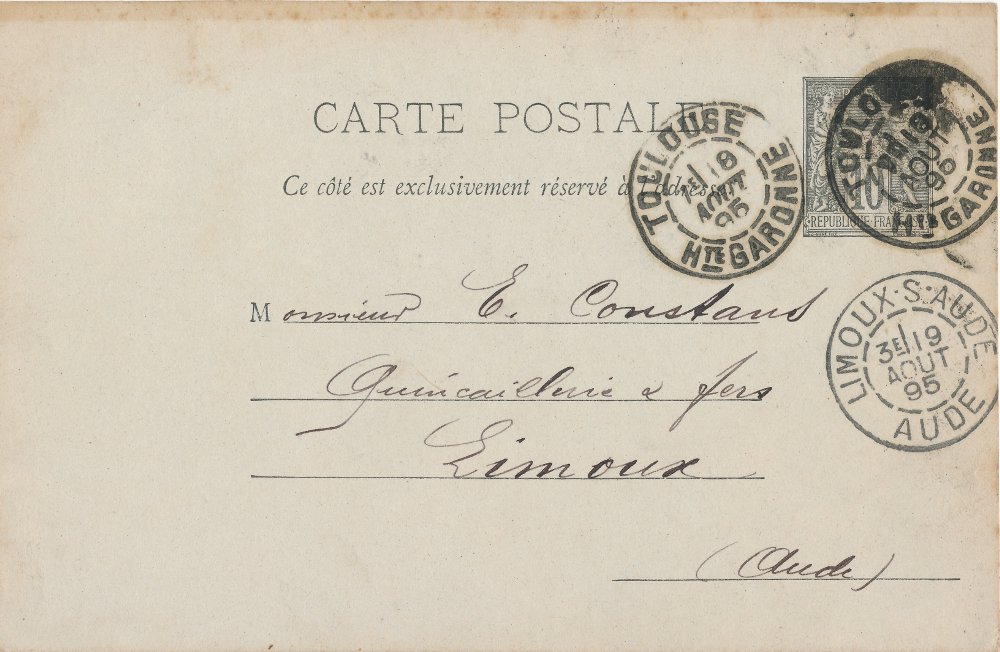 CARTE POSTALE
Ce côté est exclusivement réservé à l'adresse
TOULOUSE
18
AOUT
95
HTE GARONNE
TOULO
18
AOUT
95
HTE GARONNE
10
REPUBLIQUE FRANC
Monsieur E. Constans
Quincaillerie & fers
Limoux
(Aude)
LIMOUX-S-AUDE
3E 19
AOUT
95
AUDE